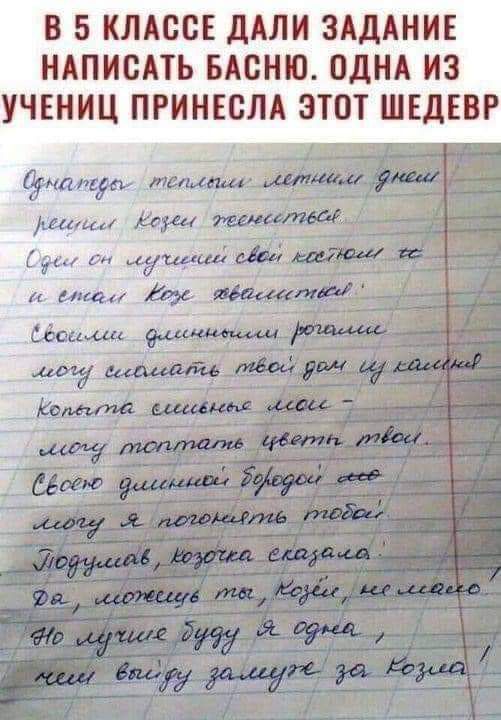 В 5 КЛАССЕ ДАЛИ ЗАДАНИЕ
НАПИСАТЬ БАСНЮ. ОДНА ИЗ
УЧЕНИЦ ПРИНЕСЛА ЭТОТ ШЕДЕВР
Однажды теплым летним днем
решил Козел жениться.
Одел он лучший свой костюм и
и стал Козе хвалиться:
Своими длинными рогами
могу сломать твой дом из камня
Копыта сильные мои -
могу топтать цветы твои.
Своею длинной бородой мо
могу я погонять тобой.
Подумав, козочка сказала:
Да, можешь ты, Козёл, не мало!
Но лучше буду я одна,
чем выйду замуж за Козла!